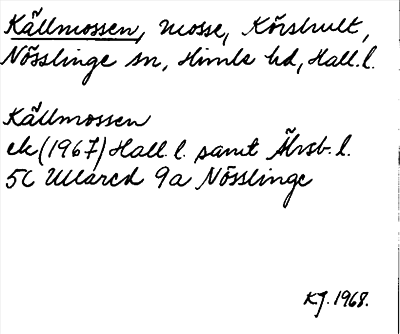 Källmossen, mosse, Körshult,
Nösslinge sn, Himle hd, Hall.l.
Källmossen
ek (1967) Hall.l. samt Älvsb.l.
5C Ullared 9a Nösslinge
KJ. 1968.